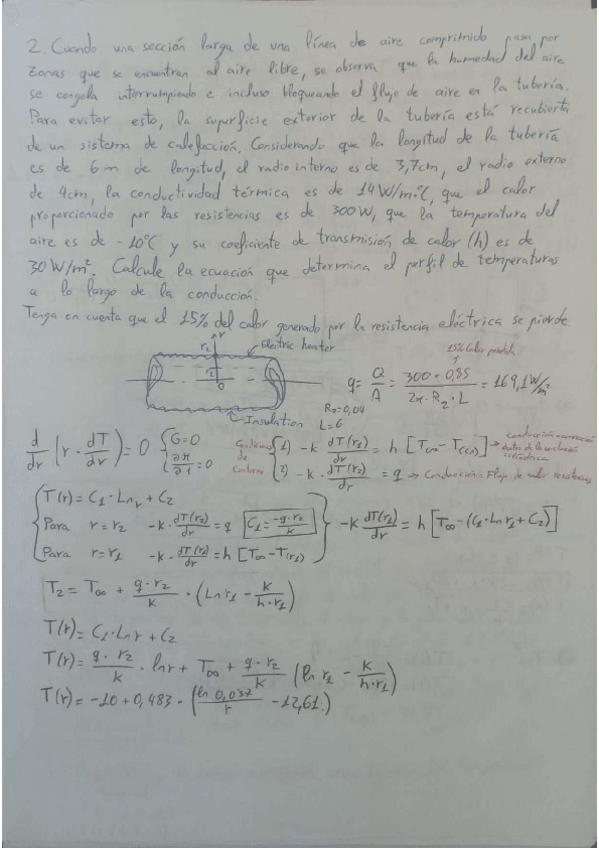 2. Cuando una sección larga de una línea de aire comprimido pasa por
zonas que se encuentran al aire libre, se observa que la humedad del aire
se congela interrumpiendo e incluso bloqueando el flujo de aire en la tubería.
Para evitar esto, la superficie exterior de la tubería está recubierta
de un sistema de calefacción. Considerando que la longitud de la tubería
es de 6 m de longitud, el radio interno es de 3,7cm, el radio externo
de 4cm, la conductividad térmica es de 14 W/m.°C, que el calor
proporcionado por las resistencias es de 300W, que la temperatura del
aire es de -10°C y su coeficiente de transmisión de calor (h) es de
30 W/m². Calcule la ecuación que determina el perfil de temperaturas
a lo largo de la conducción.
Tenga en cuenta que el 15% del calor generado por la resistencia eléctrica se pierde
r
r1
Electric heater
15% Calor perdido
r2
0
q = Q/A = 300 · 0,85 / 2π · R2 · L = 169,1 W/m²
R2=0,04
L=6
Insulation
d/dr (r · dT/dr) = 0 { G=0
Condiciones de contorno { 1) -k dT(r1)/dr = h [T∞ - T(r1)] → conducción - convección dentro de la
2) -k · dT(r2)/dr = q → Conducción = Flujo de calor resistencias
T(r) = C1 · Ln r + C2
Para r = r2 -k · dT(r2)/dr = q C1 = -q·r2/k -k dT(r1)/dr = h [T∞ - (C1 · Ln r1 + C2)]
Para r = r1 -k · dT(r1)/dr = h [T∞ - T(r1)]
T2 = T∞ + q·r2/k · (Ln r1 - k/h·r1)
T(r) = C1 · Ln r + C2
T(r) = q·r2/k · ln r + T∞ + q·r2/k (ln r1 - k/h·r1)
T(r) = -10 + 0,483 · (ln 0,037/r - 12,61.)